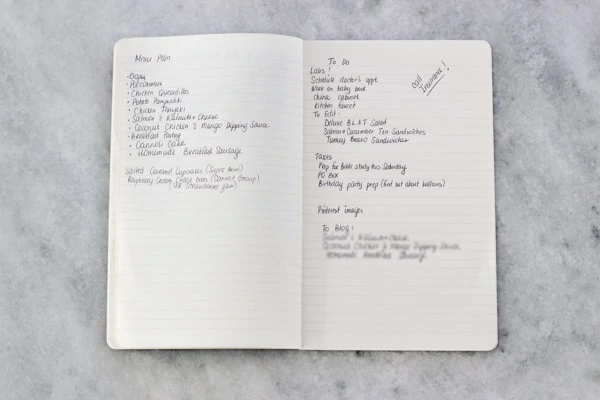 Menu Plan
• Chicken Quesadillas
• Potato
• Chicken Teriyaki
• Salmon & Walnuts + Cheese
• Coconut Chicken & Mango Dipping Sauce
• Breakfast
• Cannoli Cake
• Homemade Breakfast Sausage
Salted Caramel Cupcakes (Super bowl)
Raspberry Cream Cheese bars (Donna's Group)
(use strawberry jam)
To Do
call Insurance!
Labs!
Schedule doctor's appt
Work on baby book
china cabinet
kitchen faucet
To Edit:
Deluxe B.L.A.T Salad
Salmon + Cucumber Tea Sandwiches
Turkey Sandwiches
Taxes
Prep for Bible study this Saturday
PO BOX
Birthday party prep (find out about balloons)
Pinterest images
To Blog:
Salmon & Walnuts + Cheese
Coconut Chicken & Mango Dipping Sauce
Homemade Breakfast Sausage